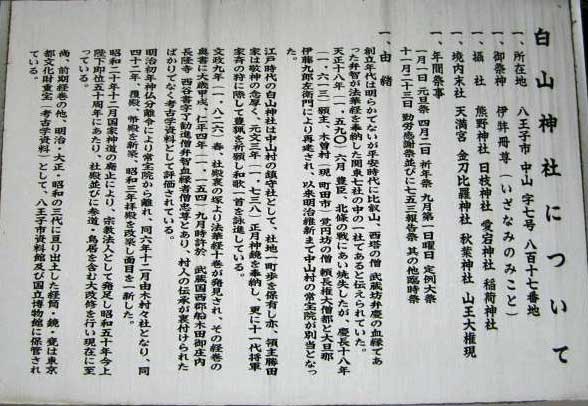 白山神社について
一、所在地 八王子市 中山 字七号 八百十七番地
一、御祭神 伊弉冊尊(いざなみのみこと)
一、摂社 熊野神社 日枝神社 愛宕神社 稲荷神社
一、境内末社 天満宮 金刀比羅神社 秋葉神社 山王大権現
一、年間祭事
一月一日 元旦祭 四月二日 祈年祭 九月第一日曜日 定例大祭
十一月二十三日 勤労感謝祭並びに七五三報告祭 其の他臨時祭
一、由緒
創立年代は明らかでないが平安時代に比叡山、西塔の僧 武蔵坊弁慶の血縁であ
った弁智が法華経を奉納した関東七社の中の一社であると伝えられていた。
天正十八年(一、五九〇)六月 豊臣、北條の戦にあい焼失したが、慶長十八年
(一、六一三)領主、木曽村(現 町田市)覚円坊の僧 頼長権大僧都と大旦那
伊藤九郎左衛門により再建され、以来明治維新まで中山村の常宝院が別当となっ
た。
江戸時代の白山神社は中山村の鎮守社として、社地一町歩を保有し亦、領主勝田
家は敬神の念厚く、元文三年(一、七三八)正月神鏡を奉納し、更に十一代将軍
家斉の狩に際して豊猟を祈願し和歌一首を詠進している。
文政九年(一、八二六)春、社殿裏の塚より法華経十巻が発見され、その経巻の
奥書に大歳甲戌、仁平四年(一、一五四)九月時許於 武蔵国西郡船木田御庄内
長隆寺 西谷書写了勧進僧弁智血縁者僧忠尊とあり、村人の伝承が裏付けられた
ばかりでなく考古学資料として評価されている。
明治初年神仏分離令により常宝院から離れ、同六年十二月由木村々社となり、同
四十二年、覆殿、幣殿を新築、昭和三年拝殿を改築し面目を一新した。
昭和二十年十二月国家神道の廃止により、宗教法人として発足し昭和五十年今上
陛下即位五十周年にあたり、社殿並びに参道・鳥居を含む大改修を行い現在に至
っている。
尚、前期経巻の他、明治・大正・昭和の三代に亘り出土した経筒・鏡・瓮は東京
都文化財重宝(考古学資料)として、八王子市資料館及び国立博物館に保管され
ている。